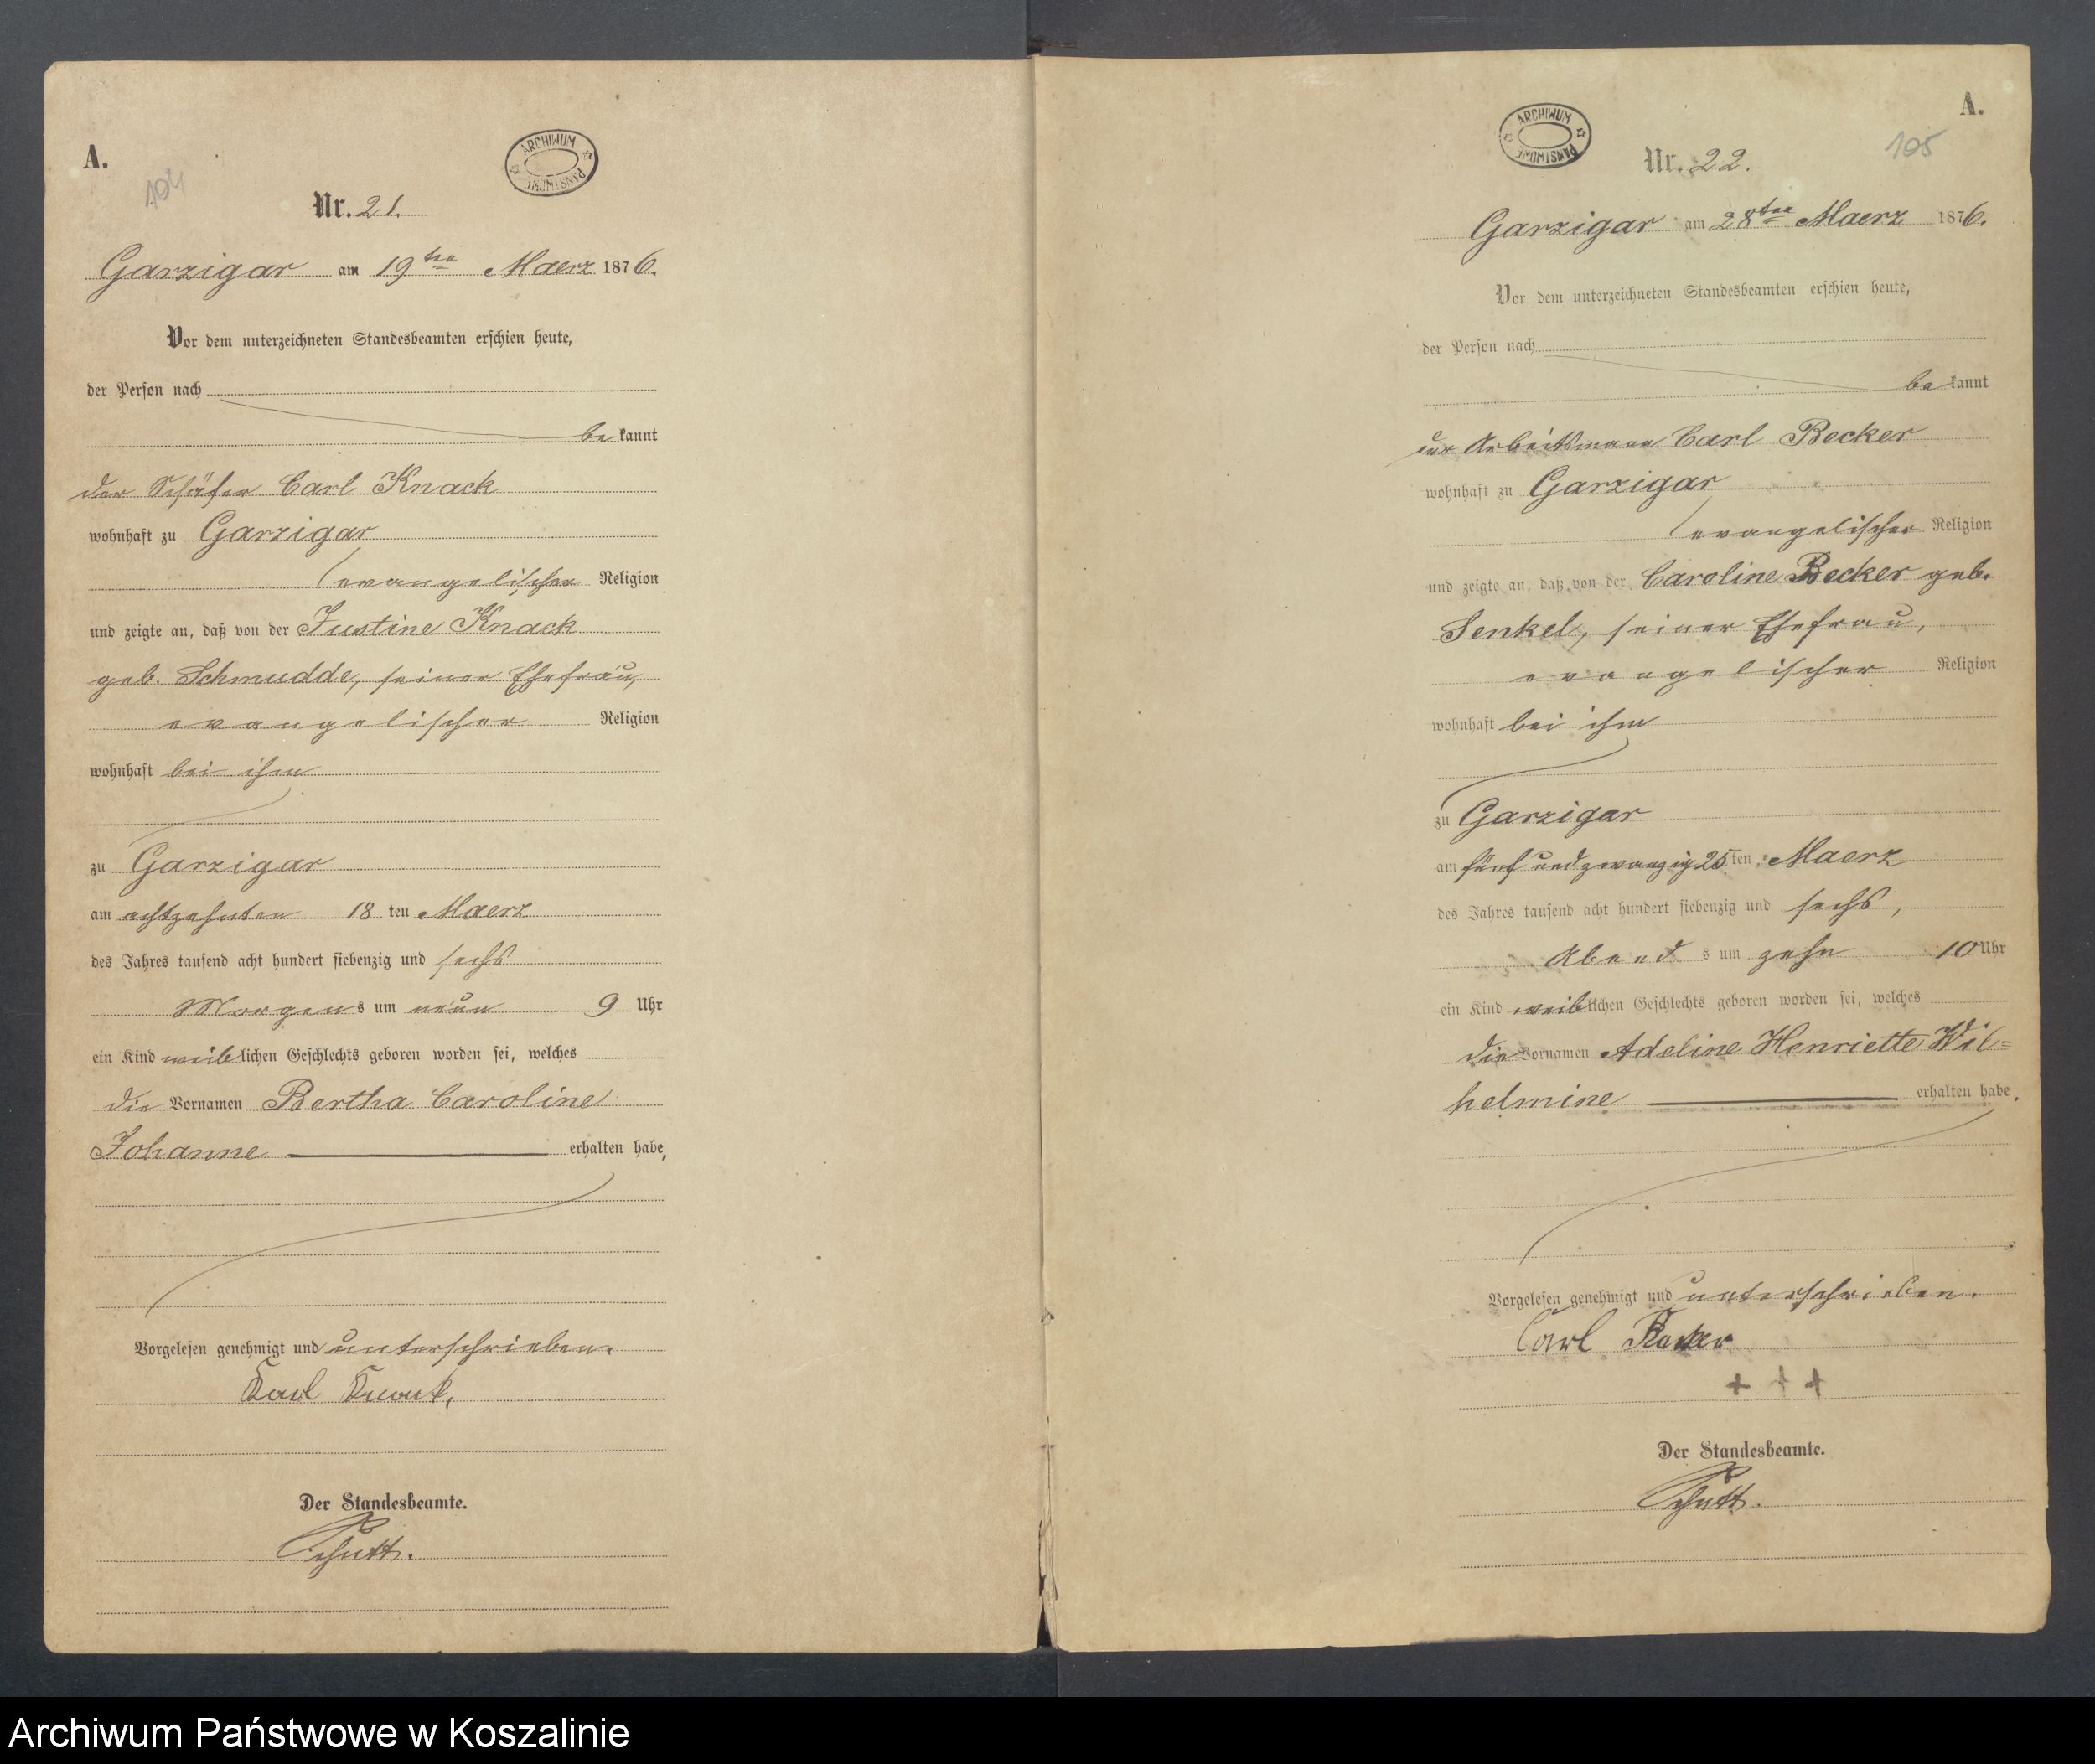 A.
104
ARCHIWUM PAŃSTWOWE
Nr. 21.
Garzigar am 19ten Maerz 1876.
Vor dem unterzeichneten Standesbeamten erschien heute,
der Person nach
be kannt
der Schäfer Carl Knack
wohnhaft zu Garzigar
evangelischer Religion
und zeigte an, daß von der Justine Knack
geb. Schmudde, seiner Ehefrau,
evangelischer Religion
wohnhaft bei ihm
zu Garzigar
am achtzehnten 18 ten Maerz
des Jahres tausend acht hundert siebenzig und sechs
Morgen s um neun 9 Uhr
ein Kind weib lichen Geschlechts geboren worden sei, welches
die Vornamen Bertha Caroline
Johanne erhalten habe,
Vorgelesen genehmigt und unterschrieben.
Karl Knack,
Der Standesbeamte.
Schutt.
A.
105
ARCHIWUM PAŃSTWOWE
Nr. 22.
Garzigar am 28ten Maerz 1876.
Vor dem unterzeichneten Standesbeamten erschien heute,
der Person nach
be kannt
der Arbeitsmann Carl Becker
wohnhaft zu Garzigar
evangelischer Religion
und zeigte an, daß von der Caroline Becker geb.
Senkel, seiner Ehefrau,
evangelischer Religion
wohnhaft bei ihm
zu Garzigar
am fünf und zwanzig 25 ten Maerz
des Jahres tausend acht hundert siebenzig und sechs,
Abend s um zehn 10 Uhr
ein Kind weib lichen Geschlechts geboren worden sei, welches
die Vornamen Adeline Henriette Wil=
helmine erhalten habe.
Vorgelesen genehmigt und unterschrieben.
Carl Becker
+ + +
Der Standesbeamte.
Schutt.
Archiwum Państwowe w Koszalinie